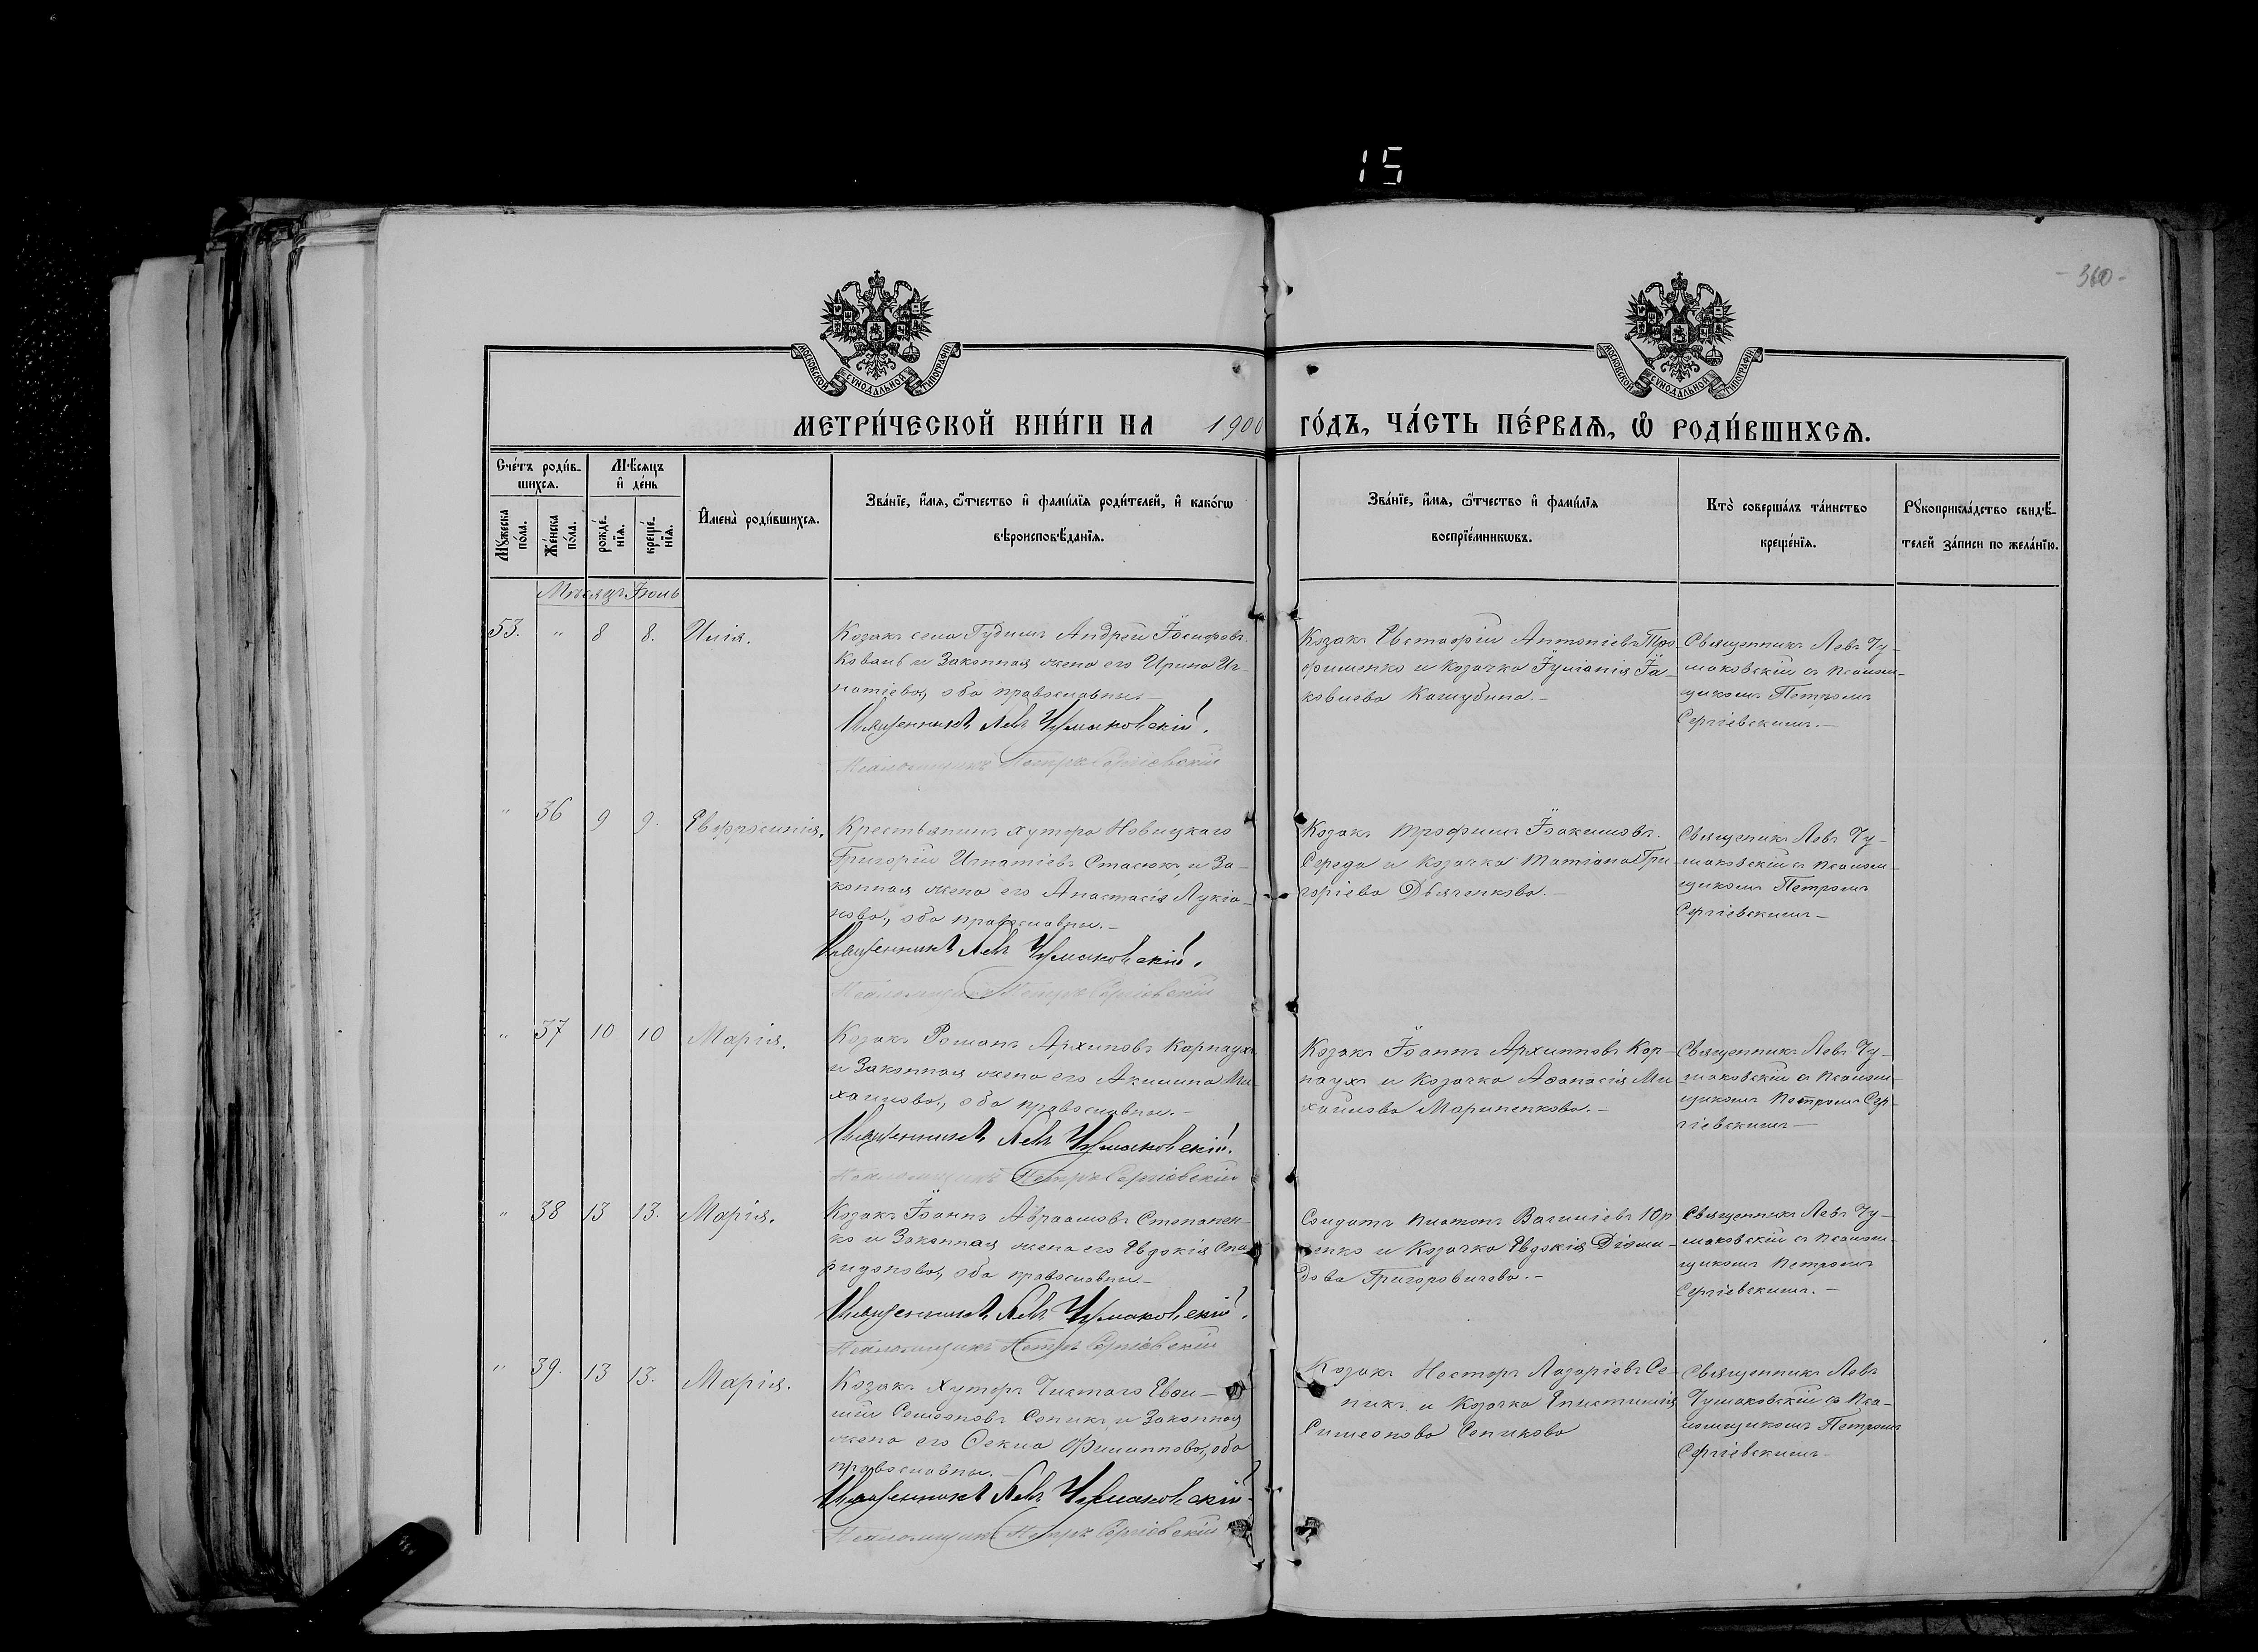 15
- 360 -
МОСКОВСКОЙ СѴНОДАЛЬНОЙ ТИПОГРАФІИ
МОСКОВСКОЙ СѴНОДАЛЬНОЙ ТИПОГРАФІИ
МЕТРИ́ЧЕСКОЙ КНИ́ГИ НА 1900 ГО́ДЪ, ЧА́СТЬ ПЕ́РВАѦ, Ѽ РОДИ́ВШИХСѦ.
Сче́тъ роди́в-
шихсѧ.
Мѣ́сяцъ
и҆ де́нь
Мꙋ́жеска
по́ла.
Же́нска
по́ла.
рожде́-
нїѧ.
креще́-
нїѧ.
И҆мена̀ роди́вшихсѧ.
Зва́нїе, и҆́мѧ, ѻ҆́тчество и҆ фами́лїѧ роди́телей, и҆ како́гѡ
вѣроисповѣ́данїѧ.
Зва́нїе, и҆́мѧ, ѻ҆́тчество и҆ фами́лїѧ
воспрїе́мникѡвъ.
Кто̀ соверша́лъ та́инство
креще́нїѧ.
Рꙋкоприкла́дство свидѣ́-
телей за́писи по жела́нїю.
Мѣсяцъ Іюль
53. " 8 8. Илія.
Козакъ села Гудимъ Андрей Іосифовъ
Коваль и законная жена его Ирина Иг-
натіева, оба православны.-
Священникъ Левъ Чумаковскій.
Псаломщикъ Петръ Сергіевскій
Козакъ Евстафій Антоніевъ Тро
фименко и козачка Іуліанія Іа-
ковлева Кашубина.-
Священникъ Левъ Чу-
маковскій съ псалом-
щикомъ Петромъ
Сергіевскимъ.-
" 36 9 9. Евфросинія.
Крестьянинъ хутора Новицкаго
Григорій Игнатіевъ Стасюкъ и за-
конная жена его Анастасія Лукіа-
нова, оба православны.-
Священникъ Левъ Чумаковскій.
Псаломщикъ Петръ Сергіевскій
Козакъ Трофимъ Іоакимовъ
Середа и козачка Татіана Гри-
горіева Дьяченкова.-
Священникъ Левъ Чу-
маковскій съ псалом-
щикомъ Петромъ
Сергіевскимъ-
" 37 10 10 Марія.
Козакъ Романъ Архиповъ Карнаухъ
и законная жена его Акилина Ми-
хаилова, оба православны.-
Священникъ Левъ Чумаковскій.
Псаломщикъ Петръ Сергіевскій
Козакъ Іоаннъ Архипповъ Кар-
наухъ и козачка Аѳанасія Ми
хаилова Мариненкова.-
Священникъ Левъ Чу-
маковскій съ псалом-
щикомъ Петромъ Сер-
гіевскимъ-
" 38 13 13. Марія.
Козакъ Іоаннъ Авраамовъ Степанен-
ко и законная жена его Евдокія Спи
ридонова, оба православны.-
Священникъ Левъ Чумаковскій.
Псаломщикъ Петръ Сергіевскій
Солдатъ Платонъ Василіевъ Юр
ченко и козачка Евдокія Діоми-
дова Григоровичева.-
Священникъ Левъ Чу-
маковскій съ псалом-
щикомъ Петромъ
Сергіевскимъ.-
" 39. 13 13. Марія.
Козакъ хутора Чистаго Евѳи-
мій Симеоновъ Сепикъ и законная
жена его Ѳекла Филиппова, оба
православны.-
Священникъ Левъ Чумаковскій
Псаломщикъ Петръ Сергіевскій
Козакъ Несторъ Лазаріевъ Се-
пикъ и козачка Епистимія
Симеонова Сепикова
Священникъ Левъ
Чумаковскій съ пса-
ломщикомъ Петромъ
Сергіевскимъ-